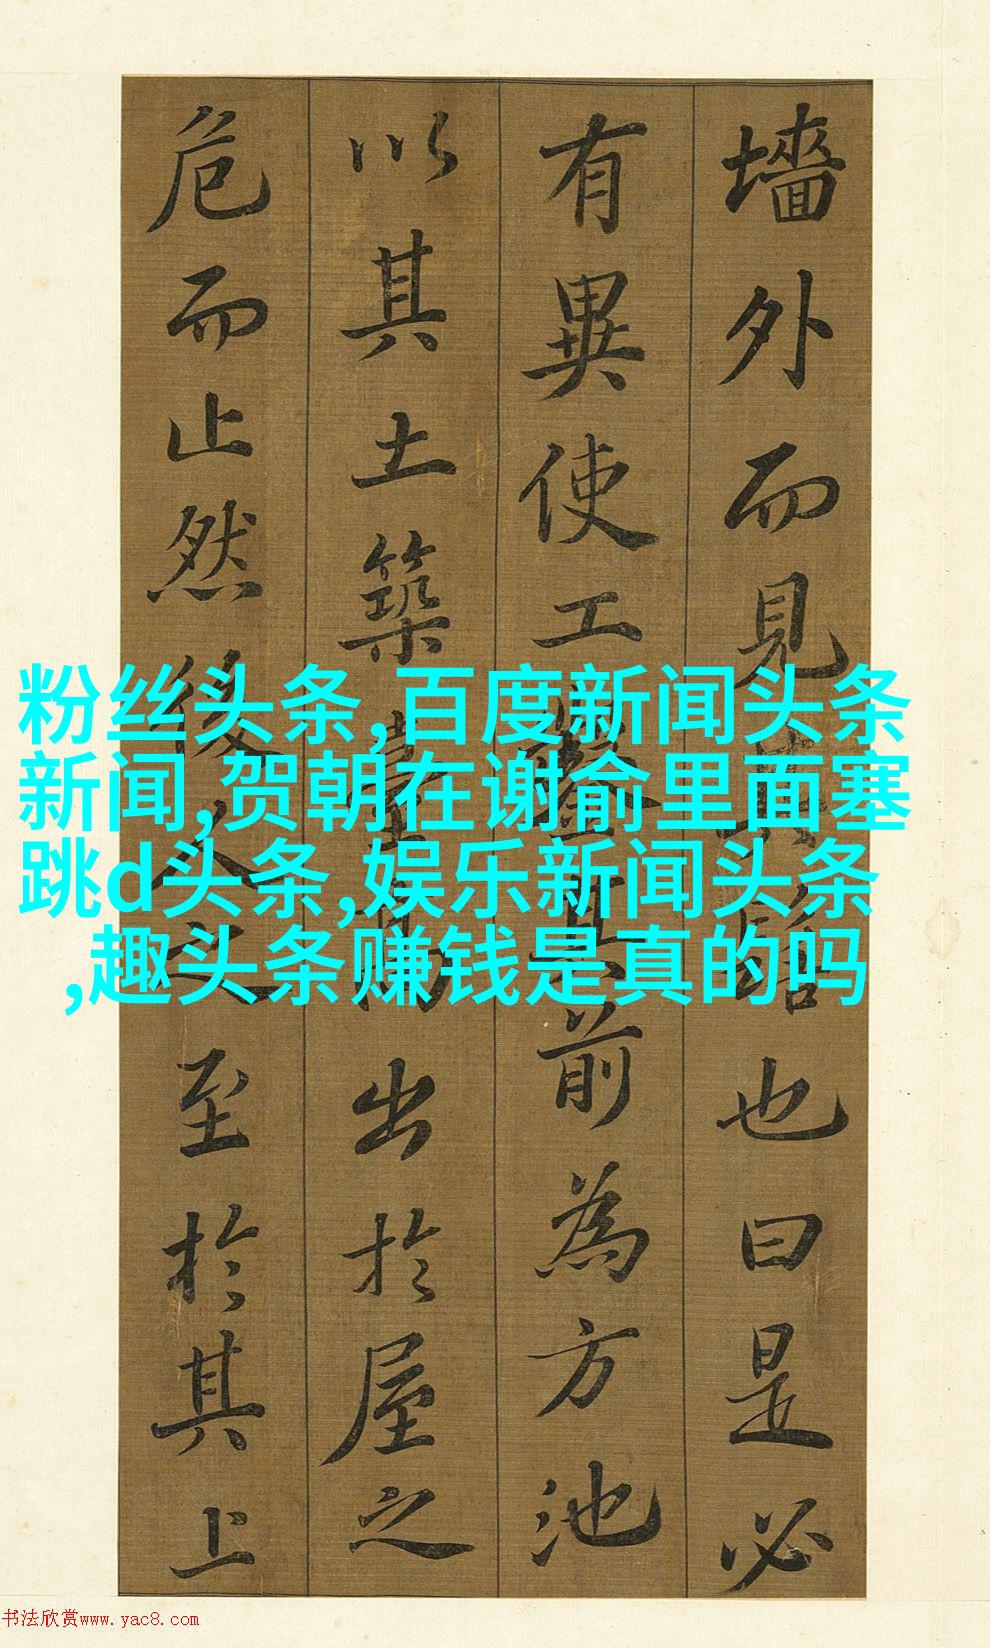 墻外而見其髻也曰是必
有異使工鑿其前為方池
以其土築臺高出於屋之
危而止然後人之至於其上
粉丝头条,百度新闻头条
新闻,贺朝在谢俞里面塞
跳d头条,娱乐新闻头条
,趣头条赚钱是真的吗
书法欣赏www.yac8.com